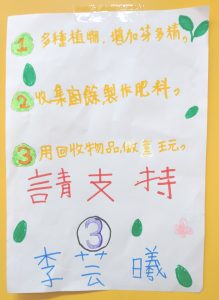 1 多種植物,增加芬多精。
2 收集廚餘製作肥料。
3 用回收物品做童玩。
請支持
3
李芸曦